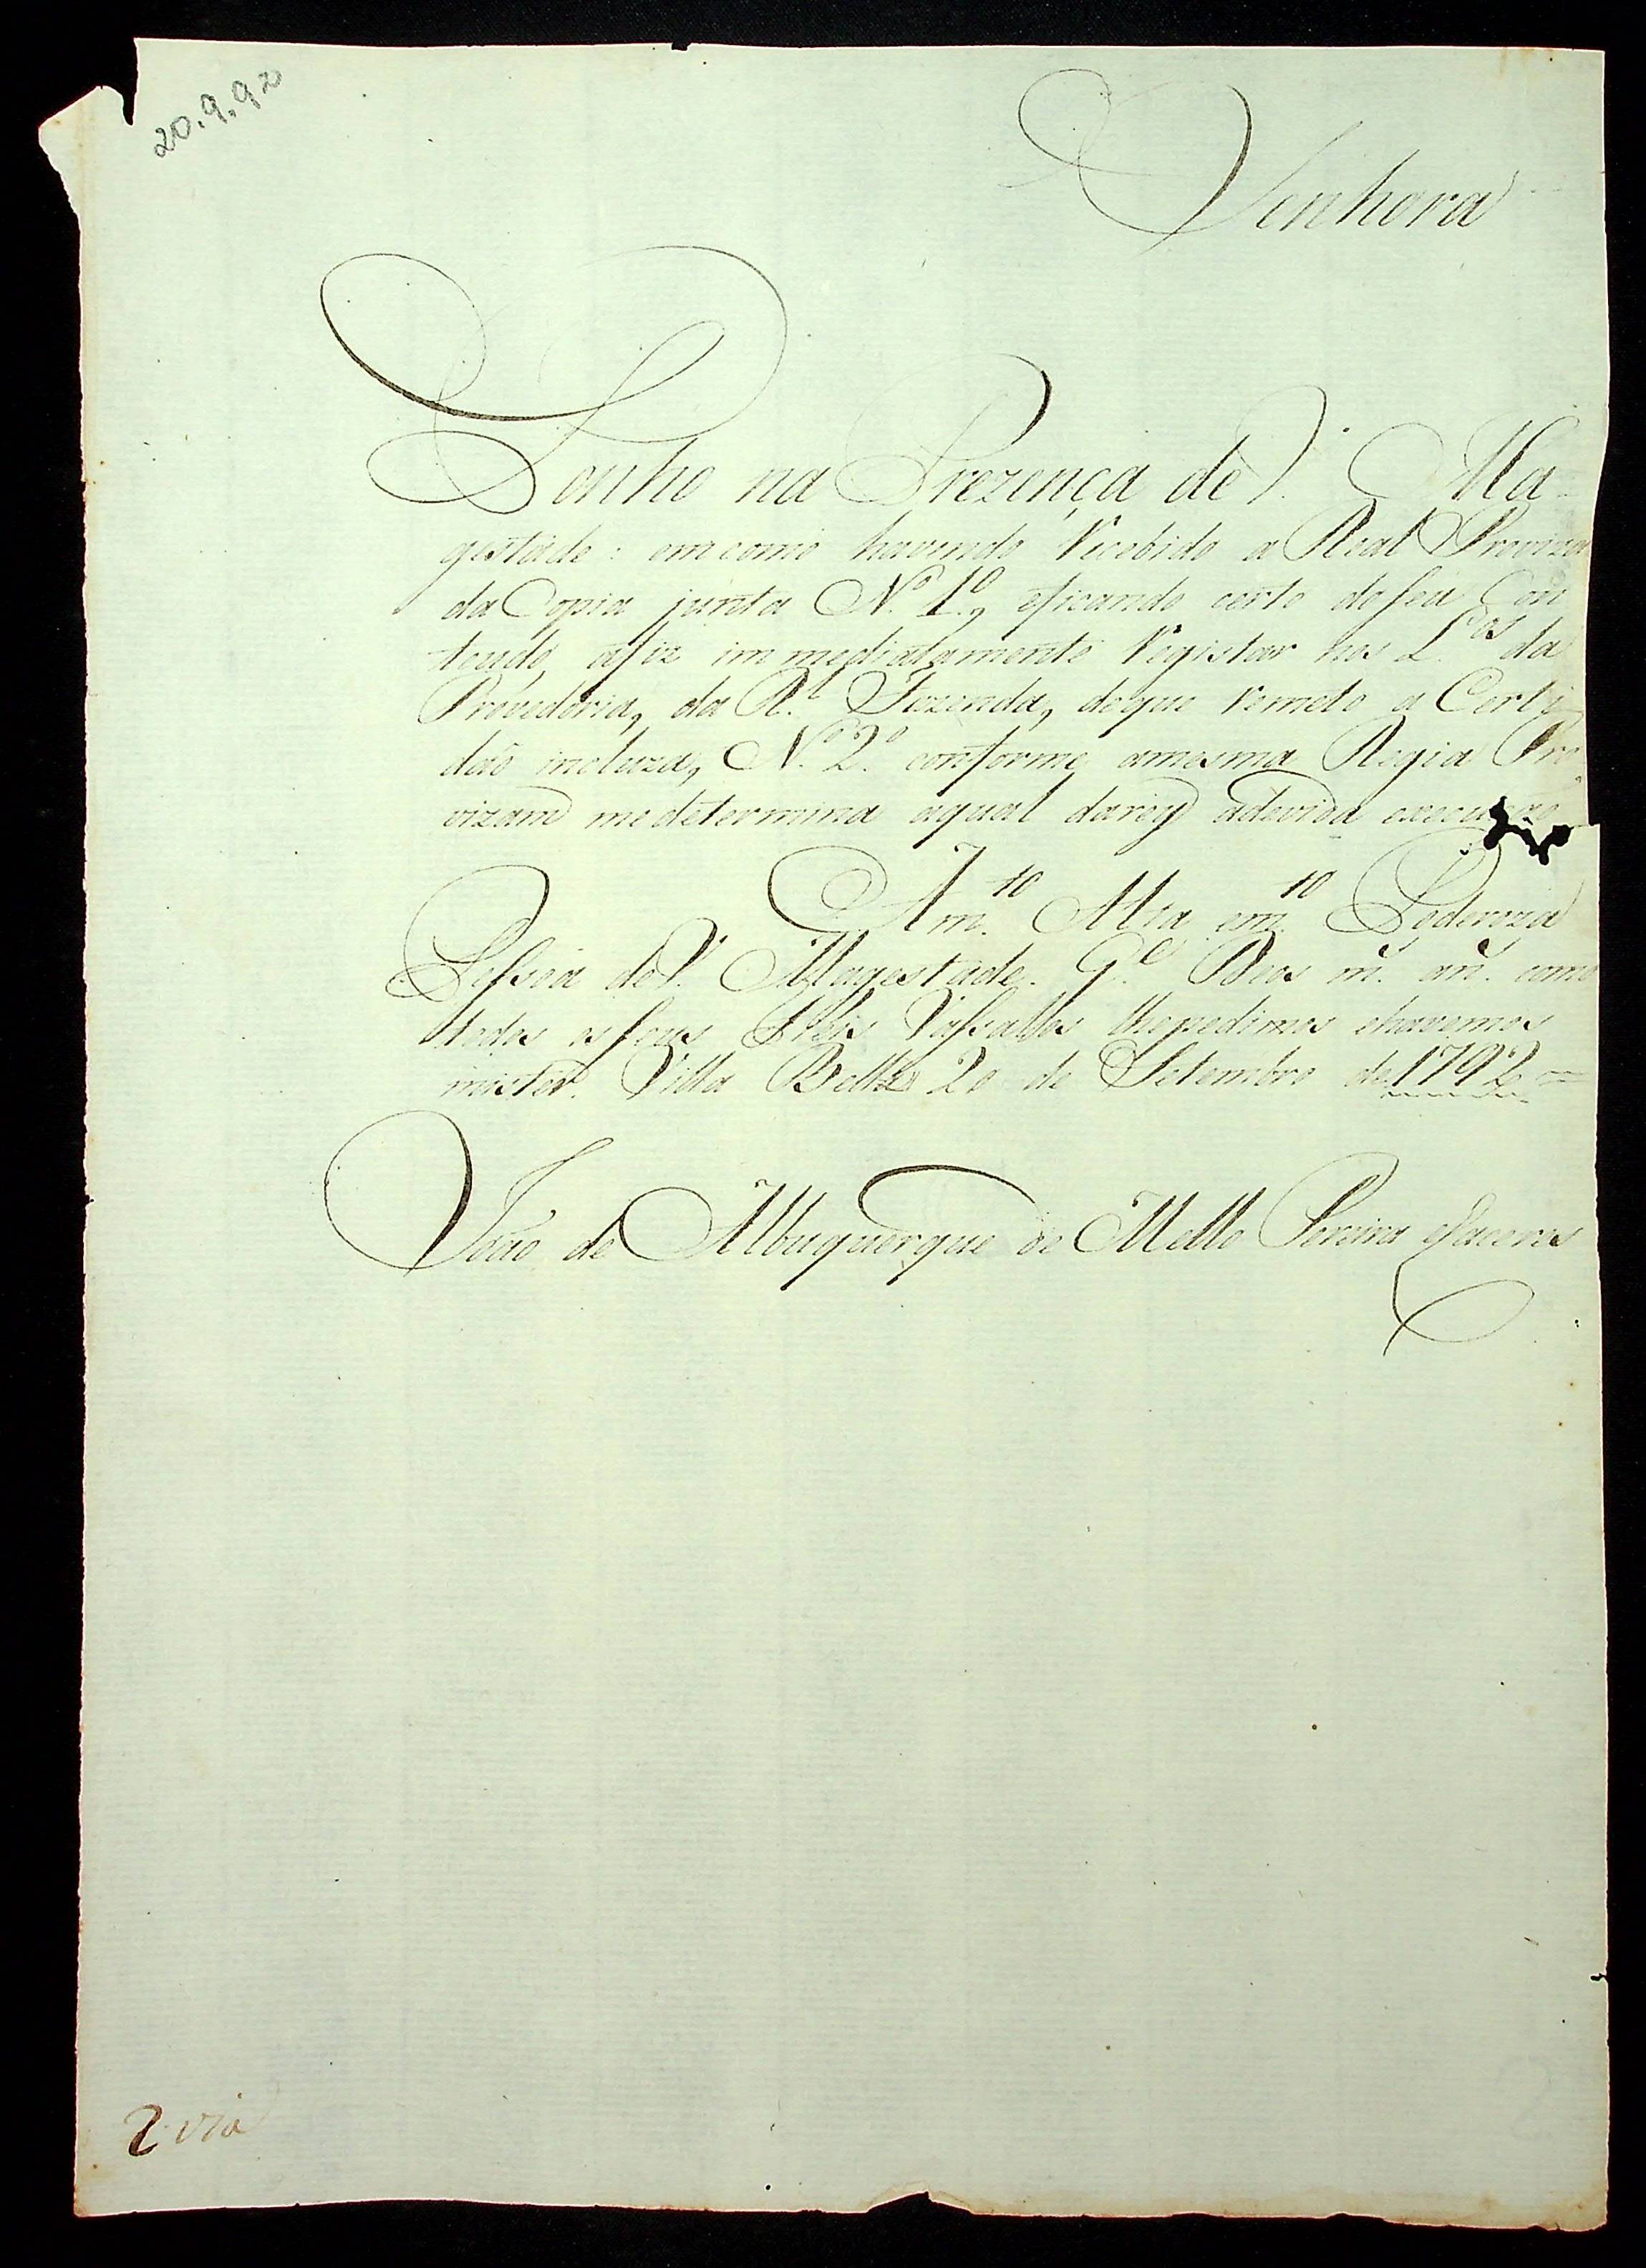 20.9.92
Senhora
Ponho na Prezença de V. Ma-
gestade: emcomo havendo Recebido a Real Proviza
da Copia junta N.º 1.º, eficando certo doseu Con
teudo, afiz immediatamente Registar nos L.os da
Provedoria, da R.l Fazenda, deque Remeto a Certi
daõ incluza, N.º 2.º conforme amesma Regia Pro
vizam medetermina aqual darey adevida execução
Am.to Alta em.to Poderoza
Pessoa deV. Magestade. G.e Deos m.s an.s como
todos osseus Fieis Vassallos lhepedimos ehavemos
mister. Villa Bella 20 de Setembro de 1792 =
João de Albuquerque de Mello Pereira eCaceres
2 via